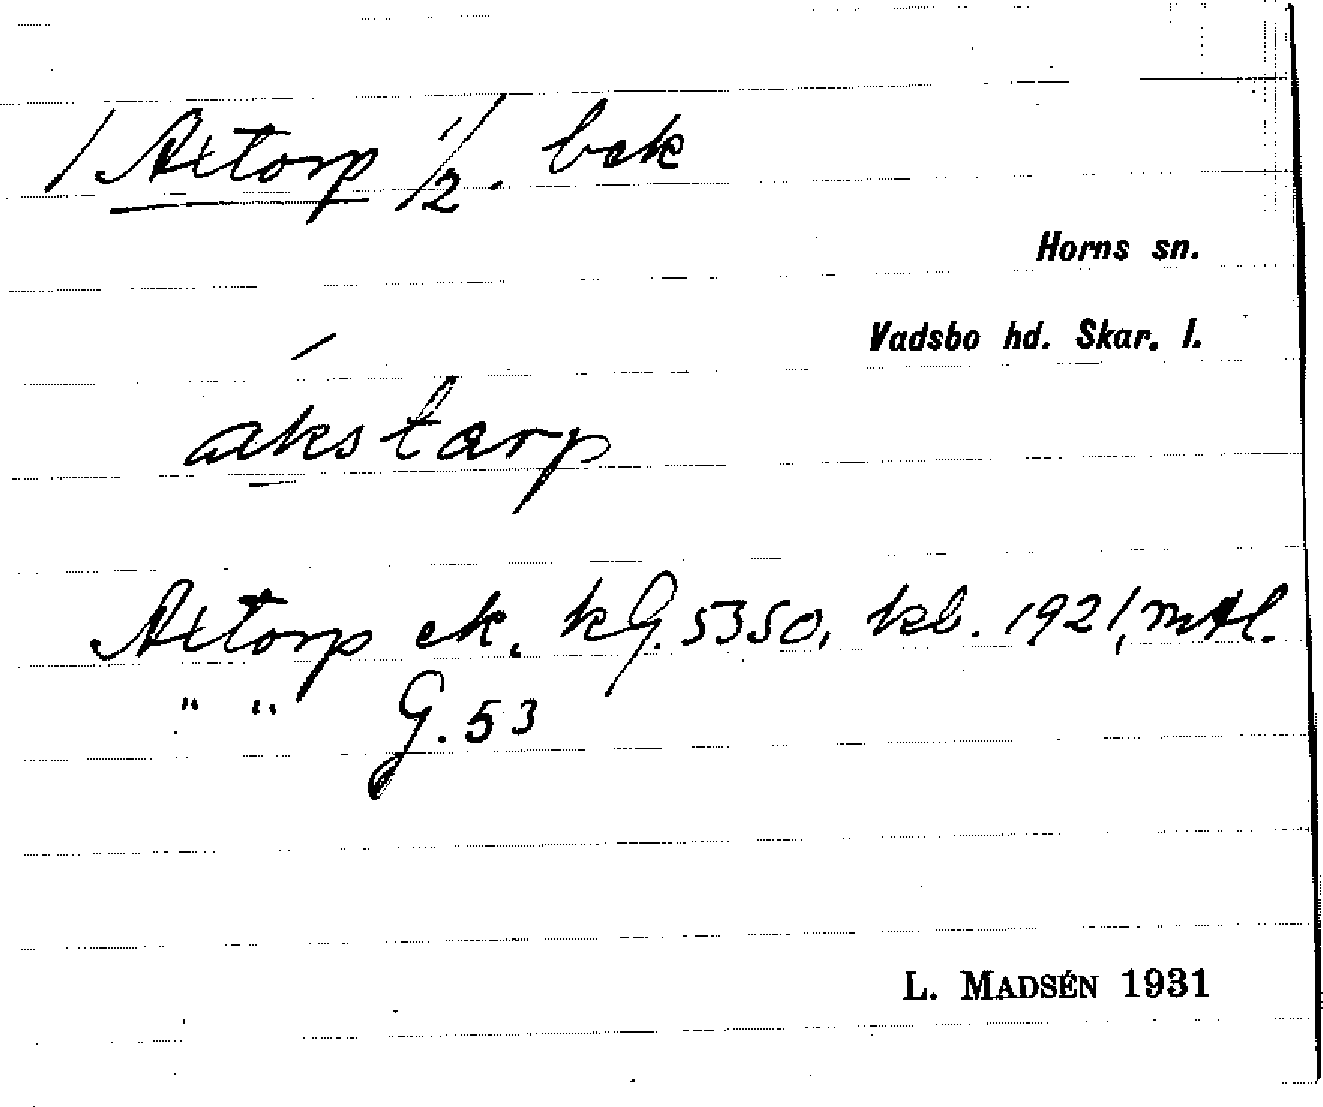 / Axtorp 1/2. bck
Horns sn.
Vadsbo hd. Skar. l.
ákstarp
Axtorp ek. kG. 5350, kb. 1921, mtl.
" " G. 53
L. MADSÉN 1931